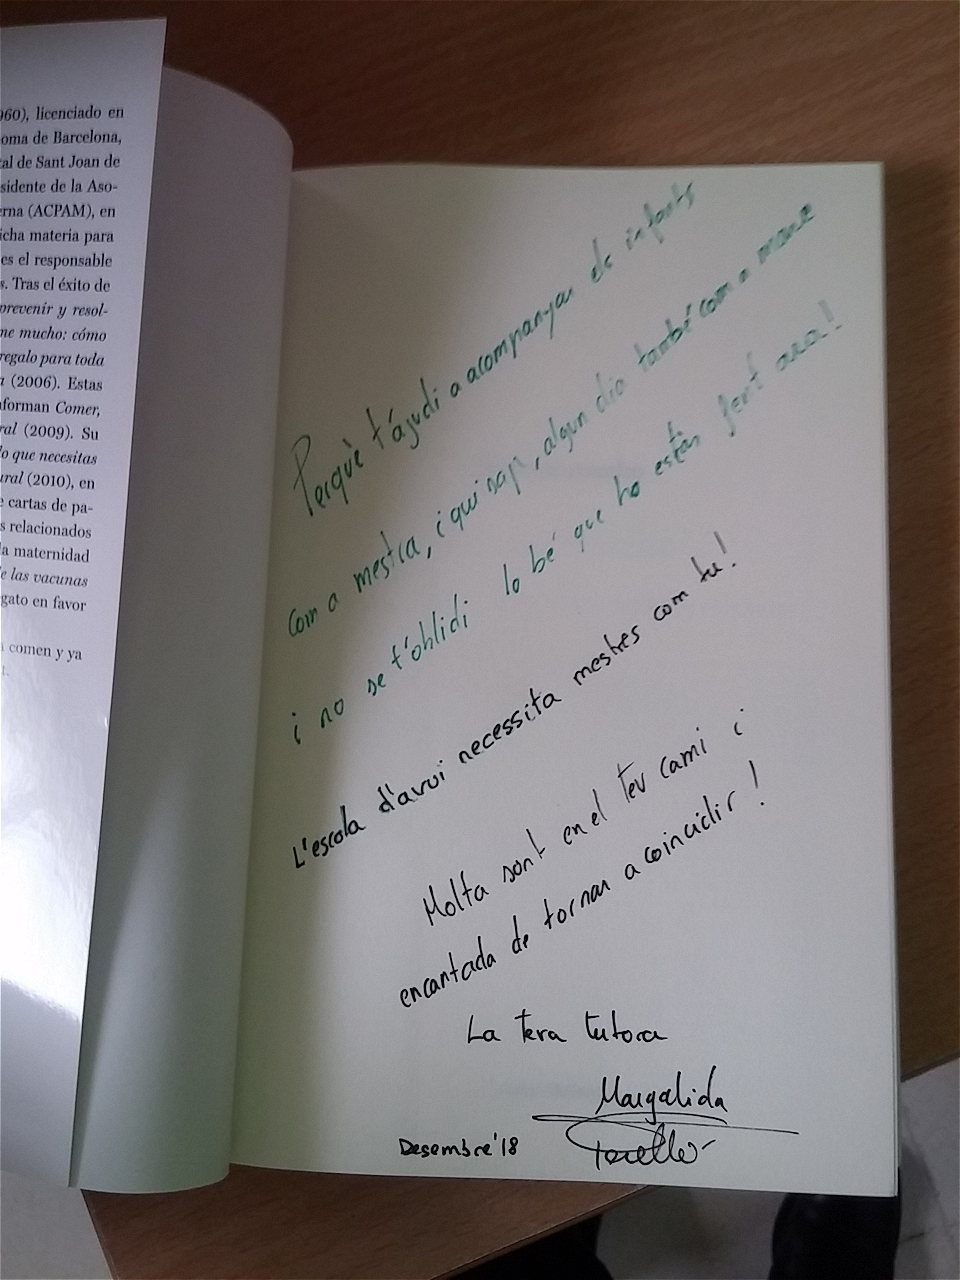 960), licenciado en
oma de Barcelona,
tal de Sant Joan de
sidente de la Aso-
erna (ACPAM), en
icha materia para
es el responsable
s. Tras el éxito de
prevenir y resol-
me mucho: cómo
regalo para toda
a (2006). Estas
forman Comer,
ral (2009). Su
lo que necesitas
ural (2010), en
e cartas de pa-
s relacionados
la maternidad
e las vacunas
gato en favor
comen y ya
Perquè t'ajudi a acompanyar els infants
com a mestra, i qui sap, algun dia també com a mare
i no se t'oblidi lo bé que ho estàs fent ara!
L'escola d'avui necessita mestres com tu!
Molta sort en el teu camí i
encantada de tornar a coincidir!
La teva tutora
Margalida
Desembre'18